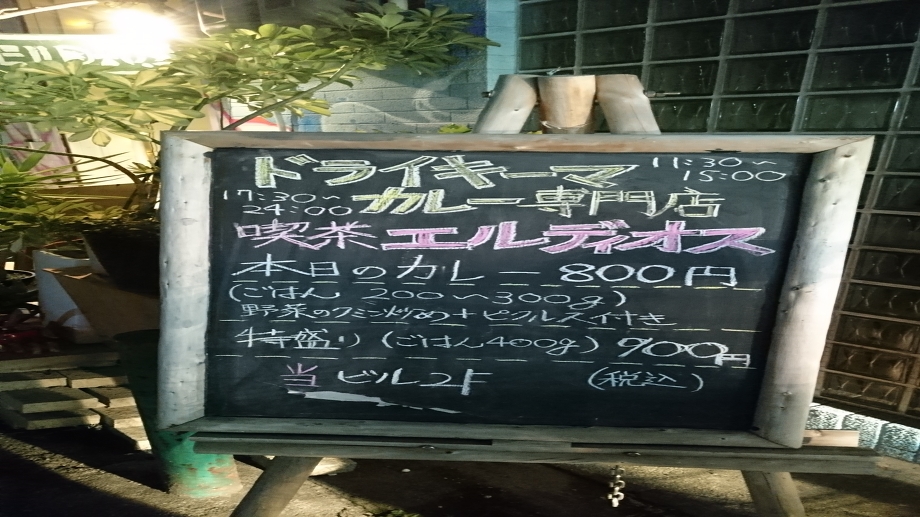 ドライキーマ 11:30〜15:00
17:30〜24:00 カレー専門店
喫茶 エルディオス
本日のカレー 800円
(ごはん 200〜300g)
野菜のクミン炒め+ピクルス付き
特盛り (ごはん400g) 900円
当ビル2F (税込)